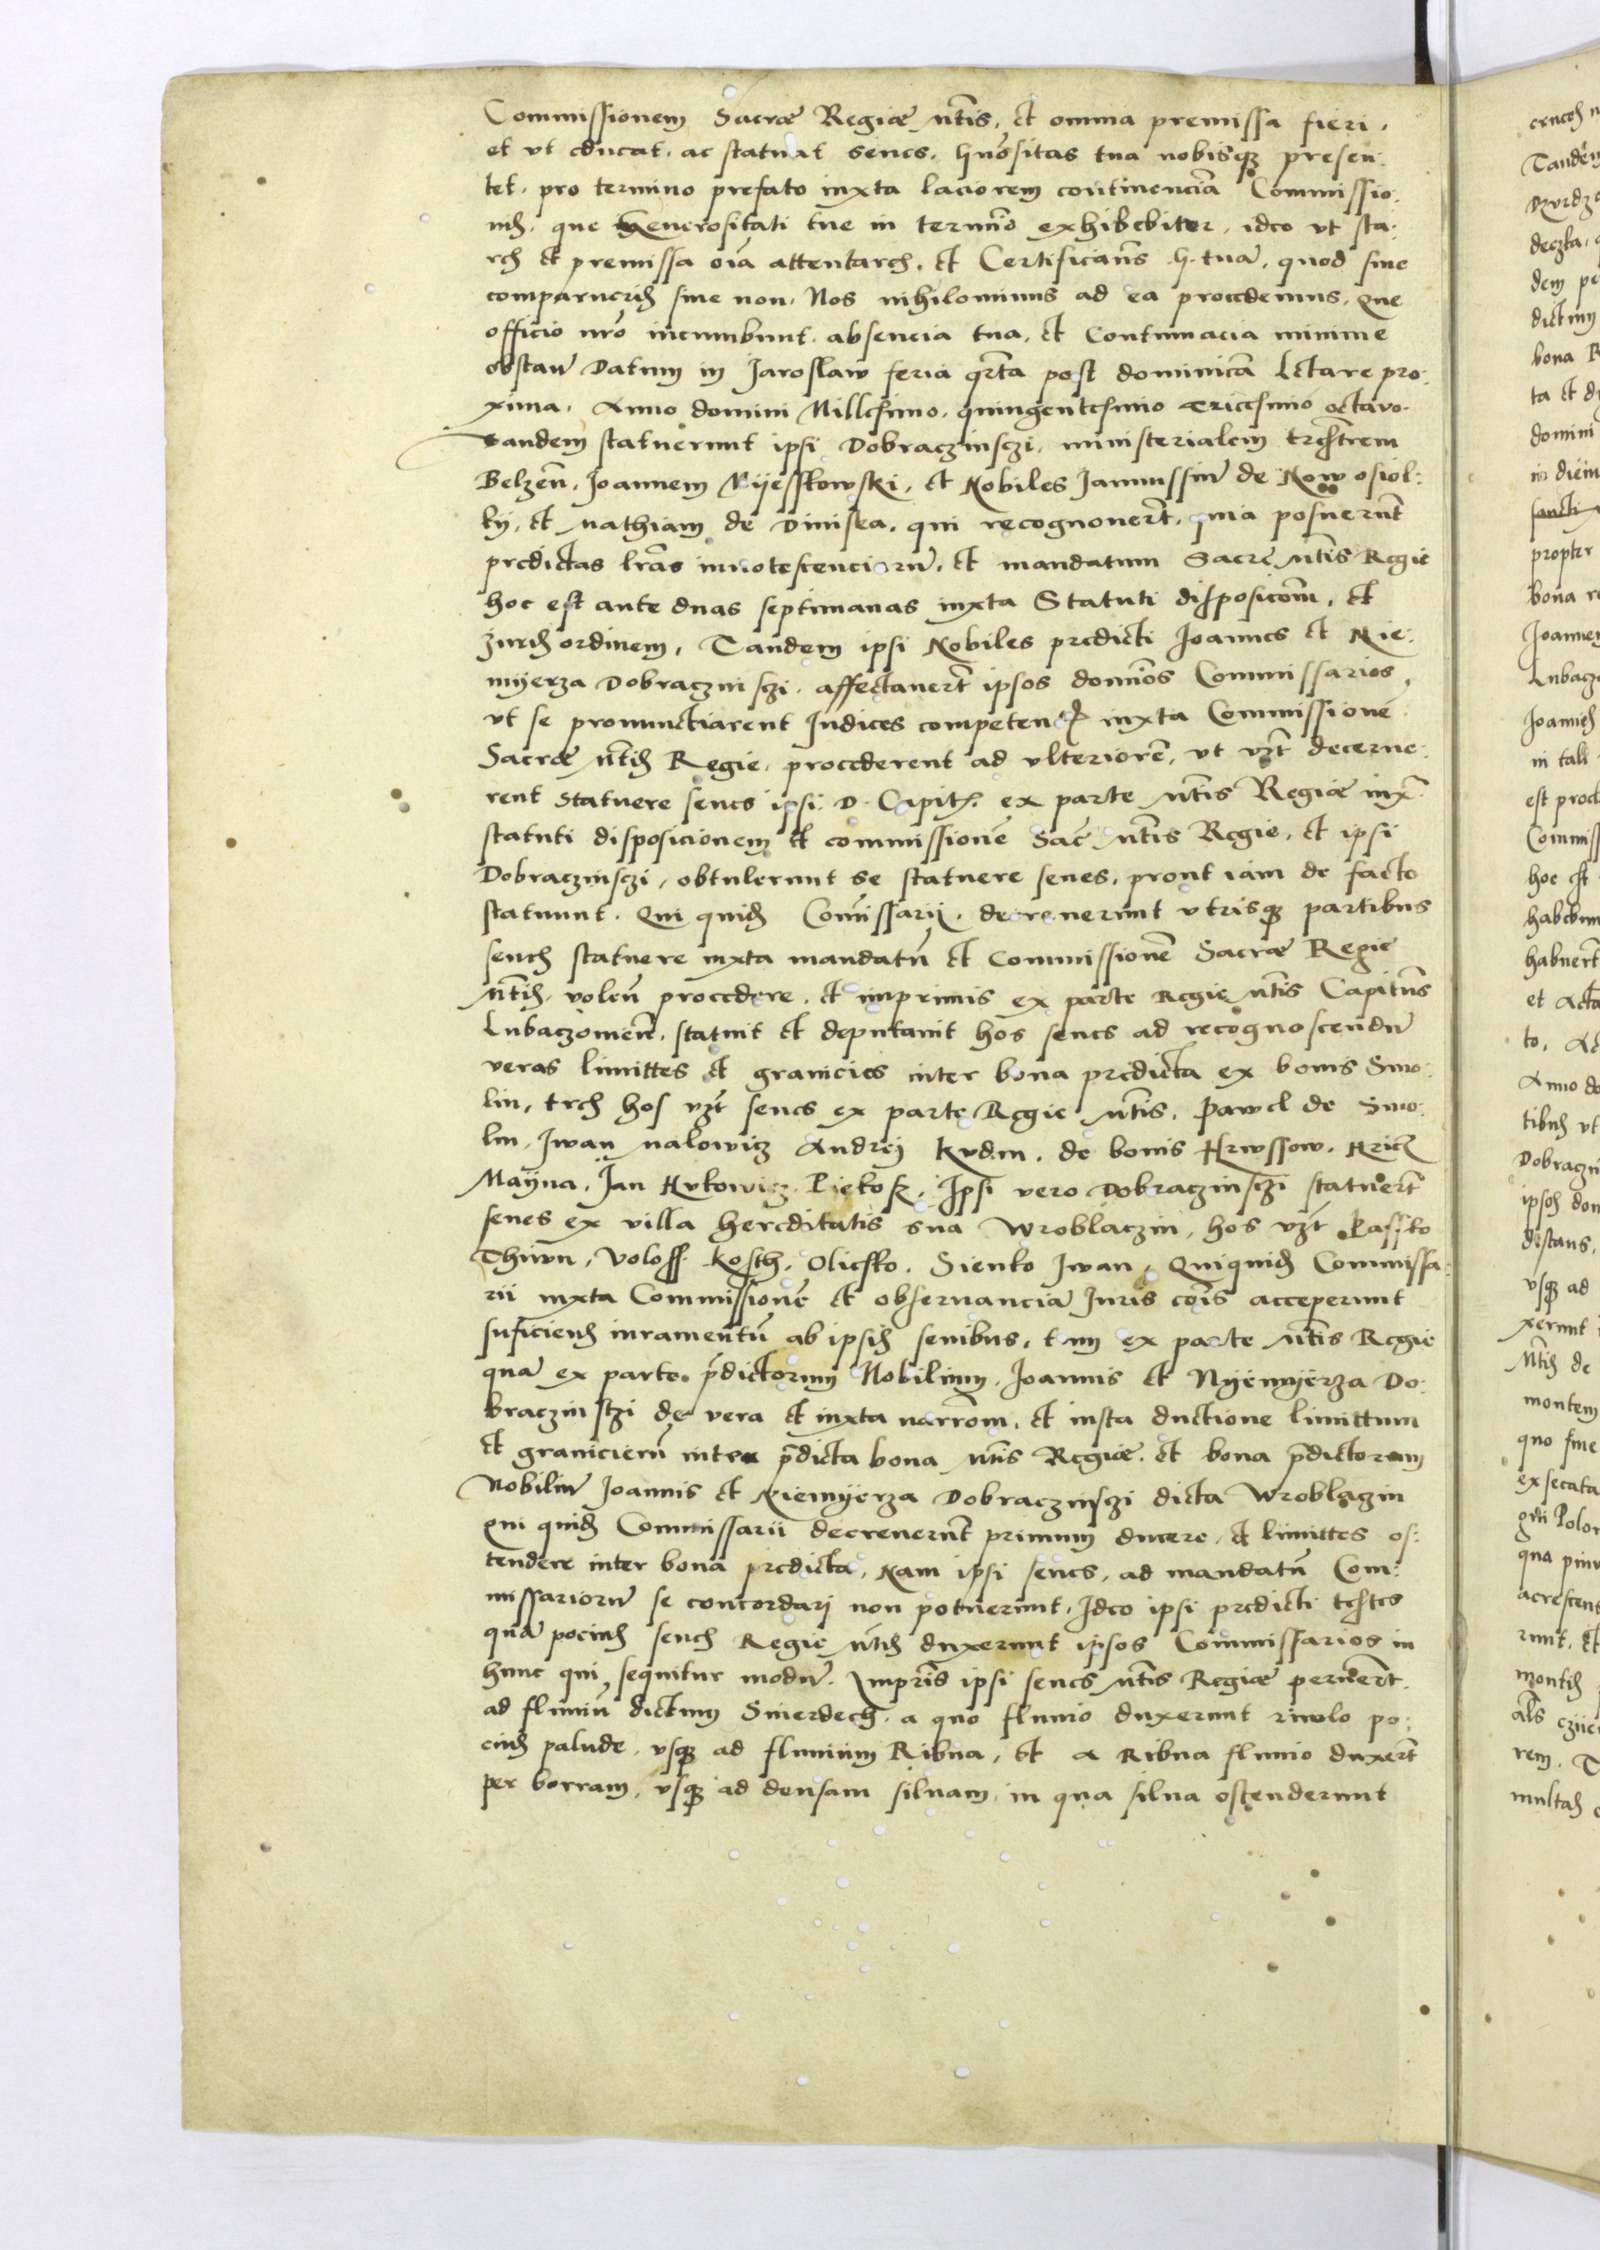 Commissionem Sacræ Regiæ Mtis, et omnia premissa fieri,
et vt educat, ac statuat senes, Gnositas tua nobisqz presen:
tet, pro termino prefato iuxta laciorem continenciã Commissio:
nis, que Generositati tue in termino exhibebitur, ideo vt sta:
res et premissa oia attentares, et Certificans G. tuã, quod siue
comparueris siue non, Nos nihilominus ad ea procedemus, que
officio nro incumbunt, absencia tua, et Contumacia minime
obstan Datum in Jaroslaw feria qrta post dominicã Letare pro:
xima, Anno domini Millesimo, quingentesimo Tricesimo octavo.
Tandem statuerunt ipsi Dobraczinsczi, ministerialem trestrem
Belzen, Joannem Myesskowski, et Nobiles Janussium de Nowosiol:
ky, et Mathiam de Diniska, qui recognouert, quia posuerunt
predictas lras innotescenciarũ, et mandatum Sacre Mtis Regie
hoc est ante duas septimanas iuxta Statuti disposicom, et
Juris ordinem, Tandem ipsi Nobiles predicti Joannes et Nie:
myerza Dobraczinsczi, affectauert ipsos dominos Commissarios,
vt se pronunctiarent Judices competen et iuxta Commissione
Sacræ Mtis Regie, procederent ad vlteriore, vt vzt decerne:
rent statuere senes ipsi D. Capit. ex parte Mtis Regiæ iux
statuti disposicionem et commissione Sac Mtis Regie, et ipsi
Dobraczinsczi, obtulerunt se statuere senes, prout iam de facto
statuunt. Qui quid Comissarij, decreuerunt vtrisqz partibus
senes statuere iuxta mandatũ et Commissione Sacræ Regie
Mtis, volen procedere, et imprimis ex parte Regie Mtis Capitns
Lubaczowien, statuit et deputauit hos senes ad recognoscendũ
veras limittes et granicies inter bona predicta ex bonis Smo:
lin, tres hos vzt senes ex parte Regie Mtis, Pawel de Smo:
lin, Iwan Malowicz Andrej Kudin, de bonis Hrwssow, Hricz
Mayna, Jan Hukowicz Piekos, Ipsi vero Dobraczinsczi statuert
senes ex villa hereditatis sua Wroblaczin, hos vzt Passko
Thiwn, Voloss Kosth, Olieffko, Sienko Iwan, Quiquid Commissa:
rii iuxta Commissione et obseruancia Juris cois acceperunt
suficiens iuramentũ ab ipsis senibus, tam ex parte Mtis Regie
quã ex parte predictorum Nobilium, Joannis et Nyemyerza Do:
braczinsczi de vera et iuxta narrom, et iusta ductione limittum
et granicierũ inter predicta bona Mtis Regiæ, et bona predictorum
Nobiliũ Joannis et Niemyerza Dobraczinsczi dicta Wroblaczin
qui quid Commissarii decreuerunt primum ducere, et limittes os:
tendere inter bona predicta, Nam ipsi senes, ad mandatũ Com:
missariorũ se concordari non potuerunt, Ideo ipsi predicti testes
quã pocius senes Regie Mtis duxerunt ipsos Commissarios in
hunc qui sequitur modũ. Impris ipsi senes Mtis Regiæ peruert.
ad fluuiũ dictum Smerdech, a quo fluuio duxerunt riuolo po:
cius palude, vsqz ad fluuium Ribna, et a Ribna fluuio duxert
per borram, vsqz ad densam siluam, in qua silua ostenderunt